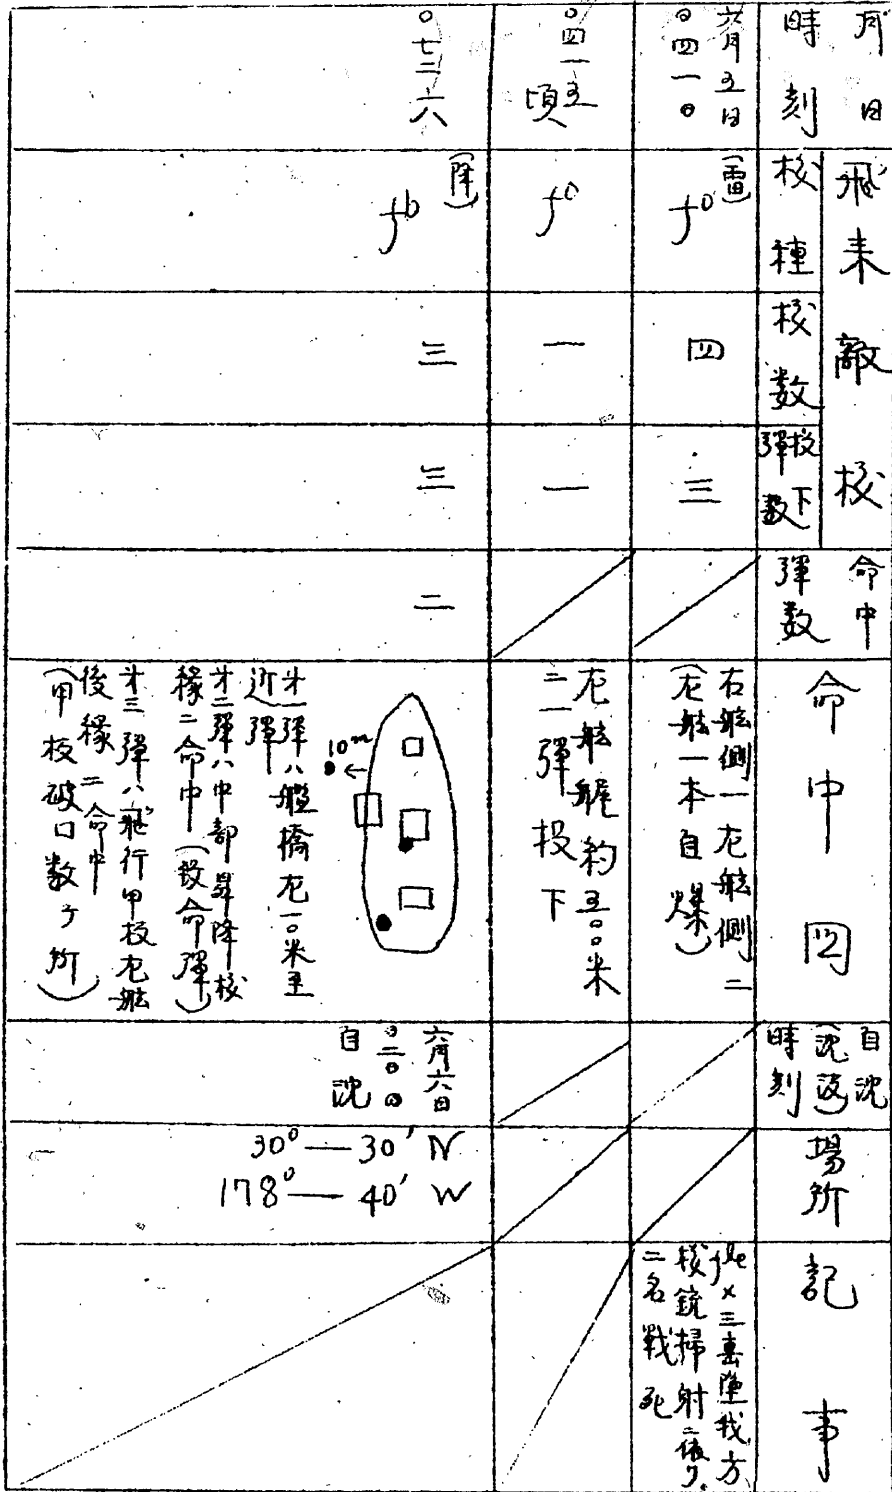 月日
時刻
飛来敵機
機種
機数
投下
彈数
命中
彈数
命中図
自沈
(沈没)
時刻
場所
記事
六月五日
〇四一〇
(雷)
f⁰
四
三
右舷側一左舷側二
(左舷一本自爆)
機銃掃射ニ依リ
二名戦死
〇四一五
頃
f⁰
一
一
左舷艉約五〇〇米
ニ一彈投下
〇七二六
(降)
fb
三
三
二
10m
オ一彈ハ艦橋左一〇米至
近彈
オ二彈ハ中部昇降機
縁ニ命中(致命彈)
オ三彈ハ飛行甲板左舷
後縁ニ命中
(甲板破口数ヶ所)
六月六日
〇二〇〇
自沈
30° — 30′ N
178° — 40′ W